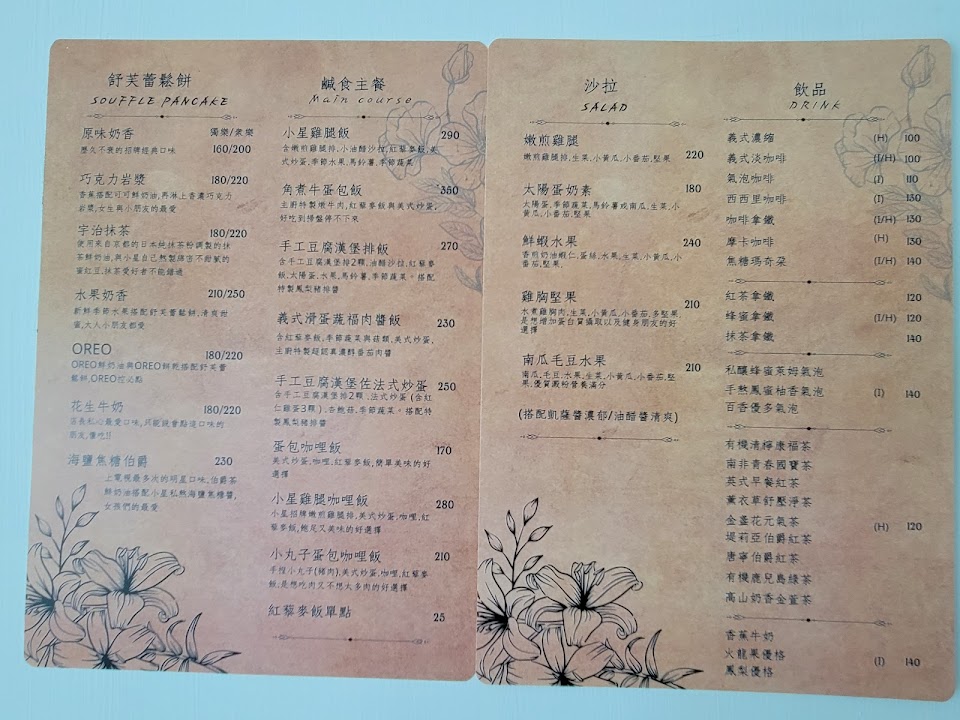 舒芙蕾鬆餅
SOUFFLE PANCAKE
原味奶香 獨樂/衆樂
歷久不衰的招牌經典口味 160/200
巧克力岩漿 180/220
香蕉搭配可可鮮奶油,再淋上香濃巧克力
岩漿,女生與小朋友的最愛
宇治抹茶 180/220
使用來自京都的日本純抹茶粉調製的抹
茶鮮奶油,與小星自己熬製綿密不甜膩的
蜜紅豆,抹茶愛好者不能錯過
水果奶香 210/250
新鮮季節水果搭配舒芙蕾鬆餅,清爽甜
蜜,大人小朋友都愛
OREO 180/220
OREO鮮奶油與OREO餅乾搭配舒芙蕾
鬆餅,OREO控必點
花生牛奶 180/220
店長私心最愛口味,只能跳拿點這口味的
朋友,懂吃!!
海鹽焦糖伯爵 230
上電視最多次的明星口味,伯爵茶
鮮奶油搭配小星私熬海鹽焦糖醬,
女孩們的最愛
鹹食主餐
Main course
小星雞腿飯 290
含嫩煎雞腿排,小油醋沙拉,紅藜麥飯,美
式炒蛋,季節水果,馬鈴薯,季節蔬菜
角煮牛蛋包飯 350
主廚特製燉牛肉,紅藜麥飯與美式炒蛋,
好吃到掃盤停不下來
手工豆腐漢堡排飯 270
含手工豆腐漢堡排2顆,油醋沙拉,紅藜麥
飯,太陽蛋,水果,馬鈴薯,季節蔬菜。搭配
特製鳳梨豬排醬
義式滑蛋蔬福肉醬飯 230
含紅藜麥飯,季節蔬菜與菇類,美式炒蛋,
主廚特製超認真濃醇番茄肉醬
手工豆腐漢堡佐法式炒蛋 250
含手工豆腐漢堡排2顆,法式炒蛋(含紅
仁雞蛋3顆),杏鮑菇,季節蔬菜。搭配特
製鳳梨豬排醬
蛋包咖哩飯 170
美式炒蛋,咖哩,紅藜麥飯,簡單美味的好
選擇
小星雞腿咖哩飯 280
小星招牌嫩煎雞腿排,美式炒蛋,咖哩,紅
藜麥飯,飽足又美味的好選擇
小丸子蛋包咖哩飯 210
手捏小丸子(豬肉),美式炒蛋,咖哩,紅藜麥
飯,是想吃肉又不想太多肉的好選擇
紅藜麥飯單點 25
沙拉
SALAD
嫩煎雞腿 220
嫩煎雞腿排,生菜,小黃瓜,小番茄,堅果
太陽蛋奶素 180
太陽蛋,季節蔬菜,馬鈴薯或南瓜,生菜,小
黃瓜,小番茄,堅果
鮮蝦水果 240
香煎奶油蝦仁,蛋絲,水果,生菜,小黃瓜,小
番茄,堅果,
雞胸堅果 210
水煮雞胸肉,生菜,小黃瓜,小番茄,多堅果,
是想增加蛋白質攝取以及健身朋友的好
選擇
南瓜毛豆水果 210
南瓜,毛豆,水果,生菜,小黃瓜,小番茄,堅
果,優質澱粉營養滿分
(搭配凱薩醬濃郁/油醋醬清爽)
飲品
DRINK
義式濃縮 (H) 100
義式淡咖啡 (I/H) 100
氣泡咖啡 (I) 110
西西里咖啡 (I) 130
咖啡拿鐵 (I/H) 130
摩卡咖啡 (H) 130
焦糖瑪奇朵 (I/H) 140
紅茶拿鐵 120
蜂蜜拿鐵 (I/H) 120
抹茶拿鐵 140
私釀蜂蜜萊姆氣泡
手熬鳳蜜柚香氣泡 (I) 140
百香優多氣泡
有機清檸康福茶
南非青春國寶茶
英式早餐紅茶
薰衣草舒壓淨茶
金盞花元氣茶 (H) 120
堤莉亞伯爵紅茶
唐寧伯爵紅茶
有機鹿兒島綠茶
高山奶香金萱茶
香蕉牛奶
火龍果優格 (I) 140
鳳梨優格